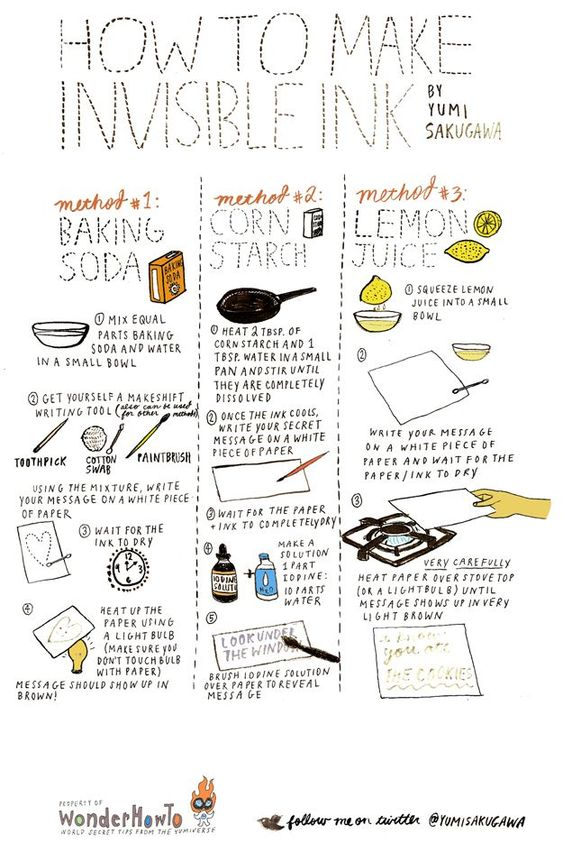 HOW TO MAKE
INVISIBLE INK
BY
YUMI
SAKUGAWA
method #1:
BAKING
SODA
BAKING
SODA
① MIX EQUAL
PARTS BAKING
SODA AND WATER
IN A SMALL BOWL
② GET YOURSELF A MAKESHIFT
WRITING TOOL (also can be used
for other methods)
TOOTHPICK
COTTON
SWAB
PAINTBRUSH
USING THE MIXTURE, WRITE
YOUR MESSAGE ON A WHITE PIECE
OF PAPER
③ WAIT FOR THE
INK TO DRY
④ HEAT UP THE
PAPER USING
A LIGHT BULB
(MAKE SURE YOU
DON'T TOUCH BULB
WITH PAPER)
MESSAGE SHOULD SHOW UP IN
BROWN!
method #2:
CORN
STARCH
① HEAT 2 TBSP. OF
CORN STARCH AND 1
TBSP. WATER IN A SMALL
PAN AND STIR UNTIL
THEY ARE COMPLETELY
DISSOLVED
② ONCE THE INK COOLS,
WRITE YOUR SECRET
MESSAGE ON A WHITE
PIECE OF PAPER
③ WAIT FOR THE PAPER
+ INK TO COMPLETELY DRY
④ MAKE A
SOLUTION
1 PART
IODINE:
10 PARTS
WATER
IODINE
H₂O
⑤
LOOK UNDER
THE WINDOW
BRUSH IODINE SOLUTION
OVER PAPER TO REVEAL
MESSAGE
method #3:
LEMON
JUICE
① SQUEEZE LEMON
JUICE INTO A SMALL
BOWL
②
WRITE YOUR MESSAGE
ON A WHITE PIECE OF
PAPER AND WAIT FOR THE
PAPER/INK TO DRY
③
VERY CAREFULLY
HEAT PAPER OVER STOVE TOP
(OR A LIGHTBULB) UNTIL
MESSAGE SHOWS UP IN VERY
LIGHT BROWN
you ate
THE COOKIES
PROPERTY OF
WonderHowTo
WORLD SECRET TIPS FROM THE YUMIVERSE
follow me on twitter @YUMISAKUGAWA